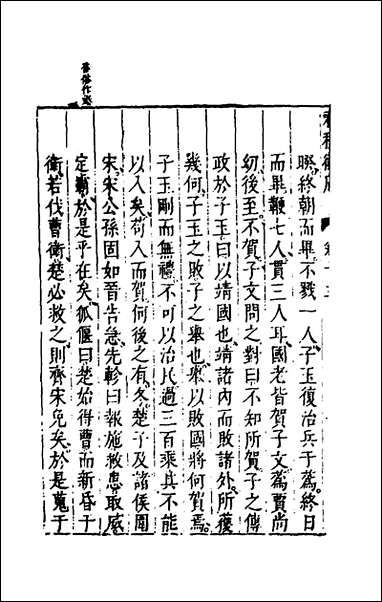 俗作
卷十三
睽終朝而畢不戮一人子玉復治兵于蔿終日
而畢鞭七人貫三人耳國老皆賀子文蔿賈尚
幼後至不賀子文問之對曰不知所賀子之傳
政於子玉曰以靖國也靖諸內而敗諸外所獲
幾何子玉之敗子之舉也舉以敗國將何賀焉
子玉剛而無禮不可以治民過三百乘其不能
以入矣苟入而賀何後之有冬楚子及諸侯圍
宋宋公孫固如晉告急先軫曰報施救患取威
定霸於是乎在矣狐偃曰楚始得曹而新昏于
衛若伐曹衛楚必救之則齊宋免矣於是蒐于